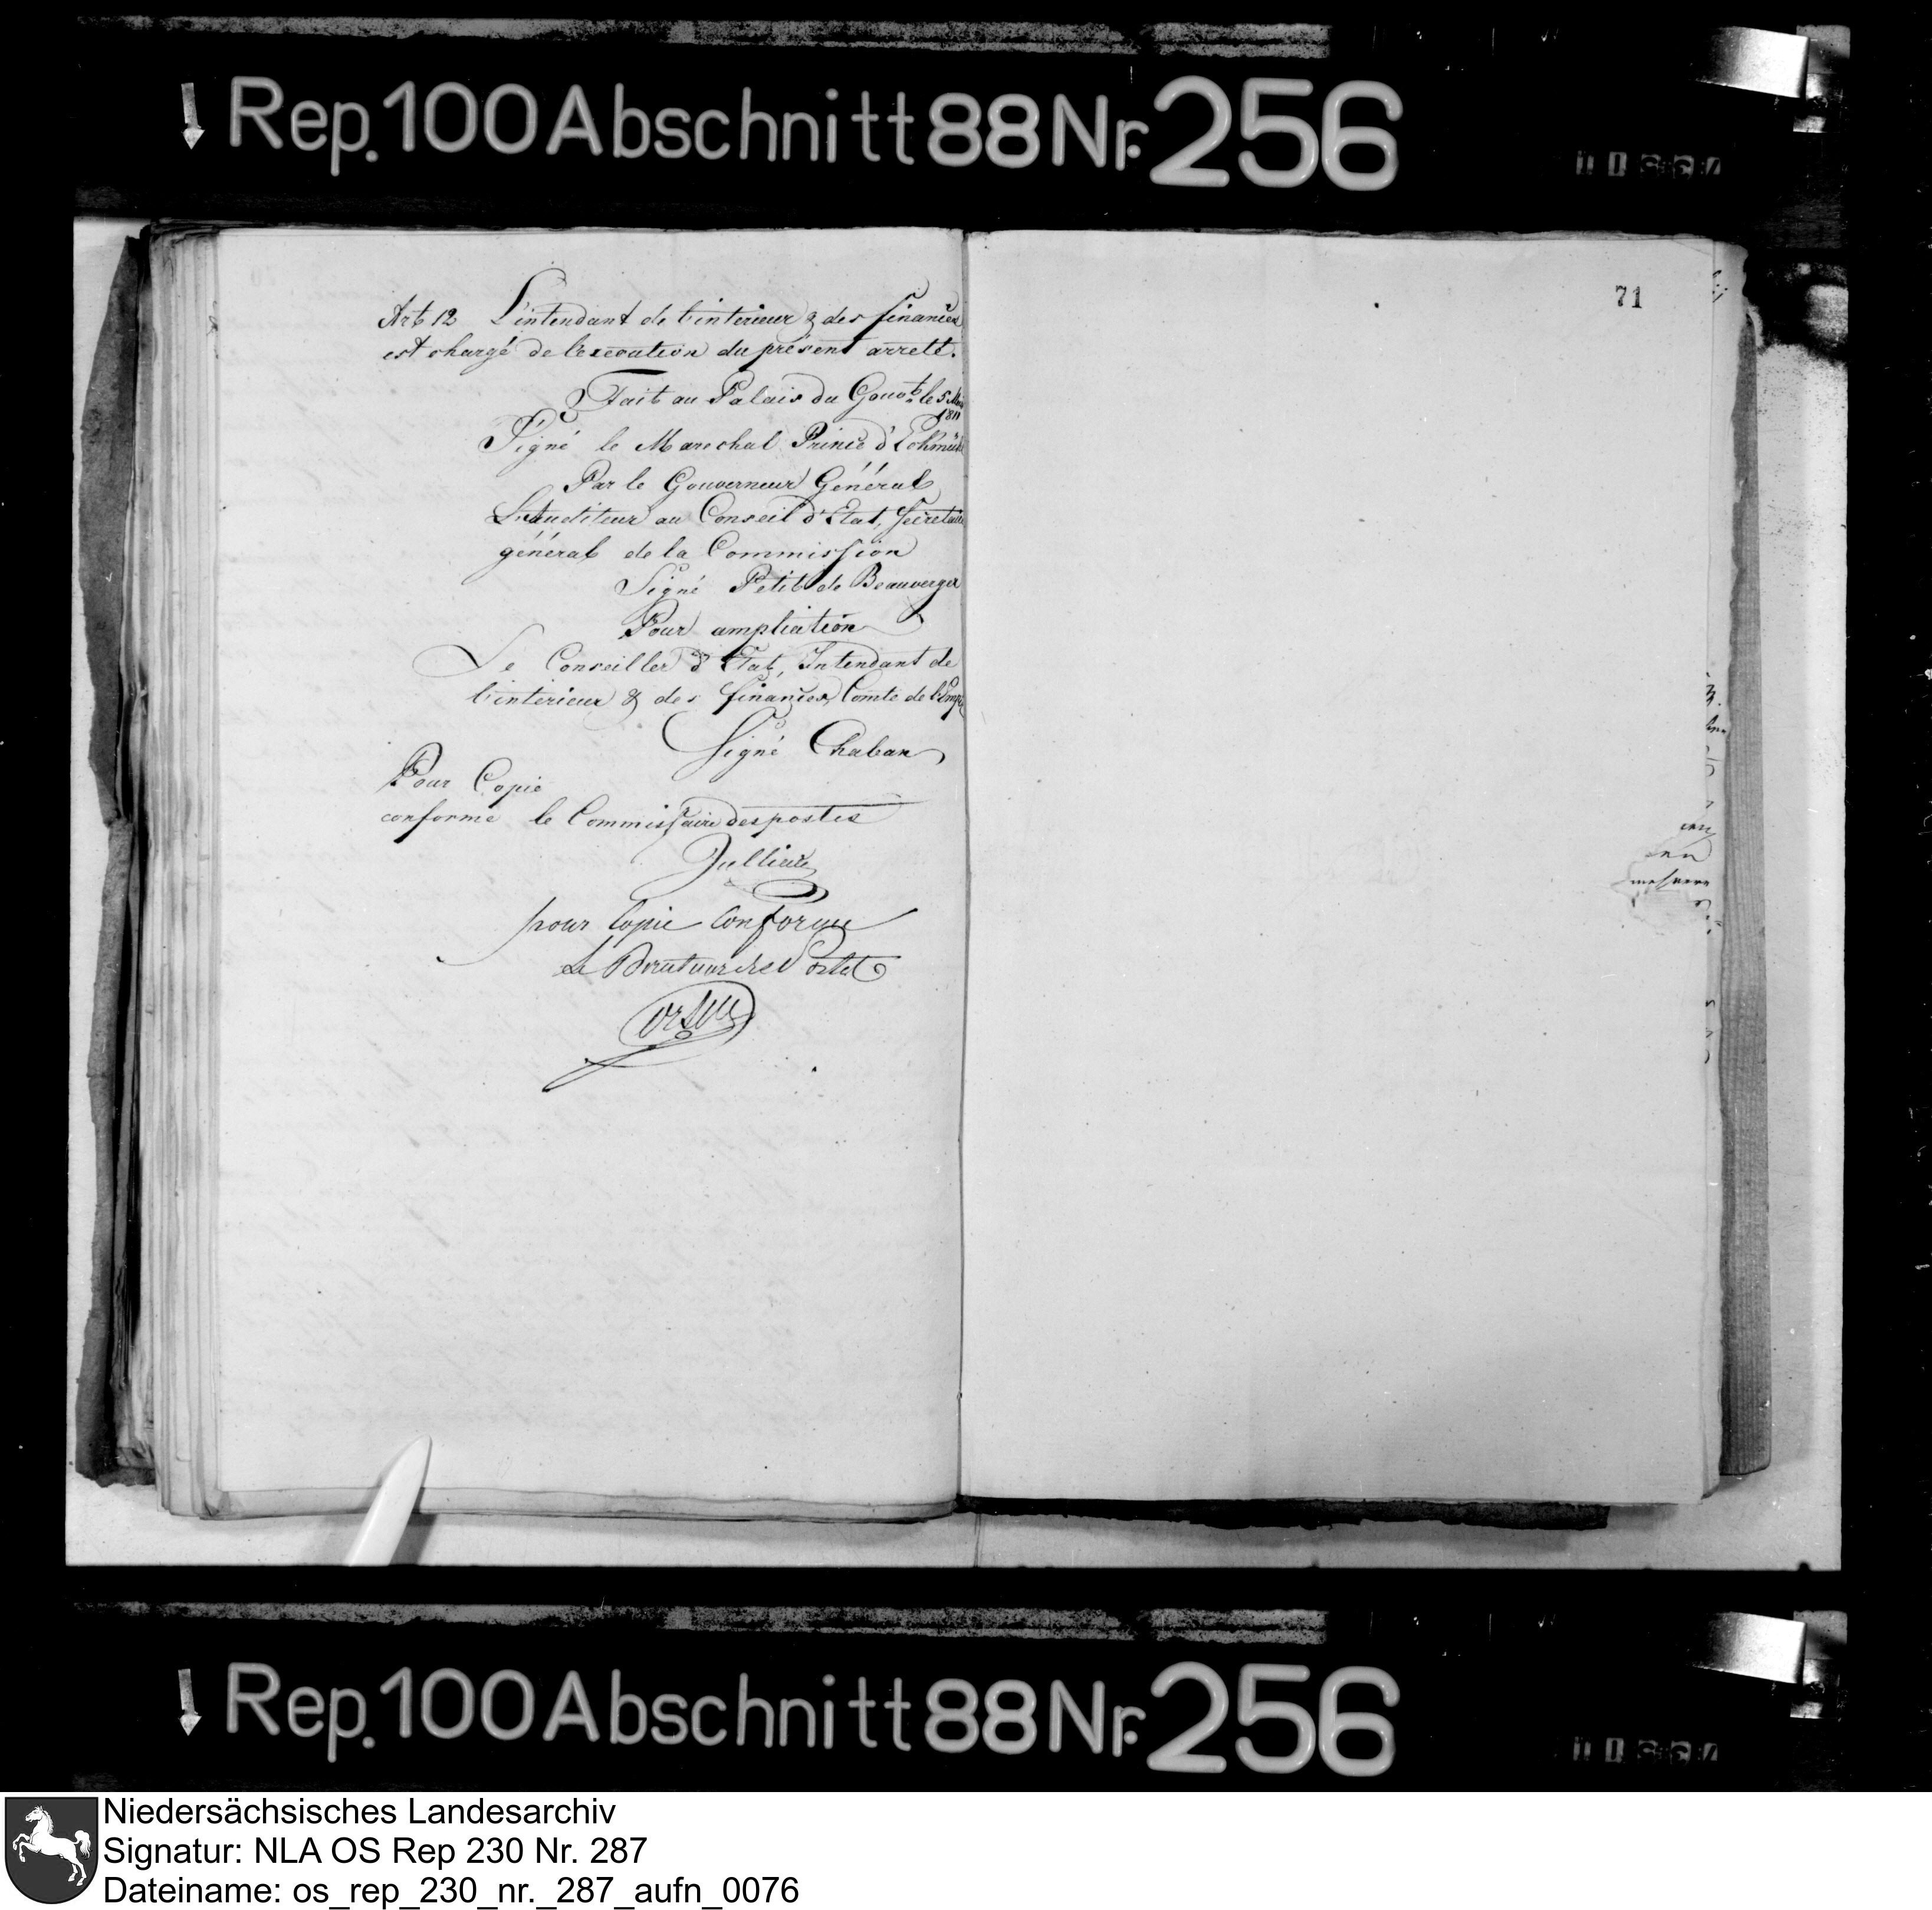 Rep. 100 Abschnitt 88 Nr. 256
71
Art 12 L'intendant de l'interieur & des finances
est chargé de l'execution du présent arreté.
Fait au Palais du Gouvt. le 5 Mars
1811
Signé le Marechal Prince d'Eckmühl
Par le Gouverneur Général
L'auditeur au Conseil d'Etat, Secretaire
général de la Commission
Signé Petit de Beauverger
Pour ampliation
Le Conseiller d'Etat, Intendant de
l'interieur & des finances, Comte de l'Emp
Signé Chaban
Pour Copie
conforme le Commissaire des postes
Jullian
pour Copie Conforme
Le Directeur des Postes
Rep. 100 Abschnitt 88 Nr. 256
Niedersächsisches Landesarchiv
Signatur: NLA OS Rep 230 Nr. 287
Dateiname: os_rep_230_nr._287_aufn_0076